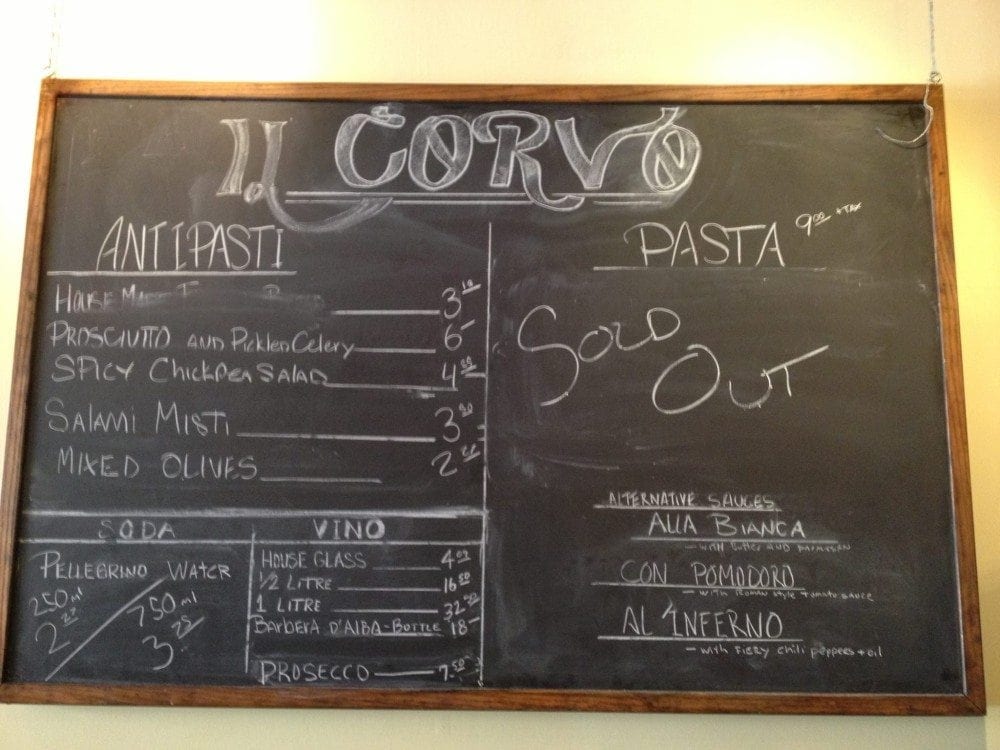 IL CORVO
ANTIPASTI
HOUSE MADE 3 10
PROSCIUTTO AND Pickled Celery 6-
SPICY Chickpea SALAD 4 00
SALAMI MISTI 3 00
MIXED OLIVES 2 50
SODA
PELLEGRINO WATER
250 ml
2 25
750 ml
3 25
VINO
HOUSE GLASS 4 00
1/2 LITRE 16 50
1 LITRE 32 50
BARBERA D'ALBA-BOTTLE 18-
PROSECCO 7.50
PASTA 9 00 + TAX
SOLD
OUT
ALTERNATIVE SAUCES
ALLA BIANCA
- WITH butter AND PARMESAN
CON POMODORO
- with Roman style tomato sauce
AL INFERNO
- with FIERY chili peppers + oil